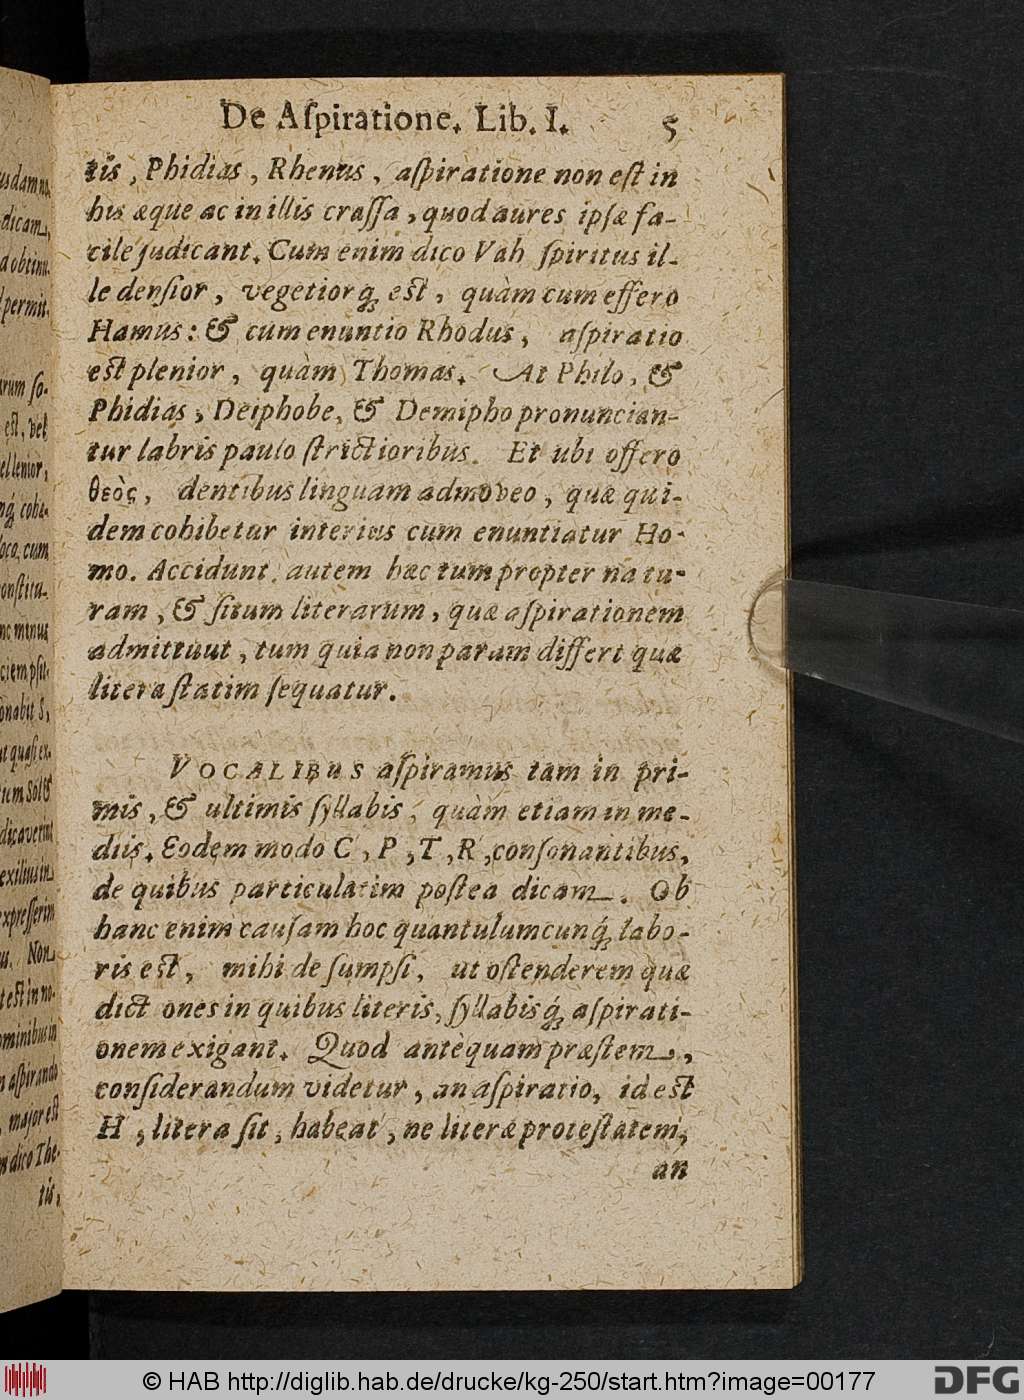 De Aſpiratione. Lib. I. 5
tis, Phidias, Rhenus, aſpiratione non eſt in
his æque ac in illis craſſa, quod aures ipſæ fa-
cile judicant. Cum enim dico Vah ſpiritus il-
le denſior, vegetiorq́; eſt, quàm cum effero
Hamus: & cum enuntio Rhodus, aſpiratio
eſt plenior, quàm Thomas. At Philo, &
Phidias, Deiphobe, & Demipho pronuncian-
tur labris paulo ſtrictioribus. Et ubi offero
θεὸς, dentibus linguam admoveo, quæ qui-
dem cohibetur interius cum enuntiatur Ho-
mo. Accidunt autem hæc tum propter natu-
ram, & ſitum literarum, quæ aſpirationem
admittuut, tum quia non parum differt quæ
litera ſtatim ſequatur.
VOCALIBUS aſpiramus tam in pri-
mis, & ultimis ſyllabis, quàm etiam in me-
diis. Eodem modo C, P, T, R, conſonantibus,
de quibus particulatim poſtea dicam. Ob
hanc enim cauſam hoc quantulumcunq́; labo-
ris eſt, mihi deſumpſi, ut oſtenderem quæ
dict ones in quibus literis, ſyllabisq́; aſpirati-
onem exigant. Quod antèquam præſtem,
conſiderandum videtur, an aſpiratio, id eſt
H, litera ſit, habeat, ne literæ proteſtatem,
an
usdam
dicam,
permit-
arum ſo-
eſt, vel
lenior,
cohæ-
loco, cum
conſtitu-
minus
Sol &
dicaverint
exilius in
expreſſerim
Non
aſpirando
major eſt
dico The-
tis,
© HAB http://diglib.hab.de/drucke/kg-250/start.htm?image=00177
DFG